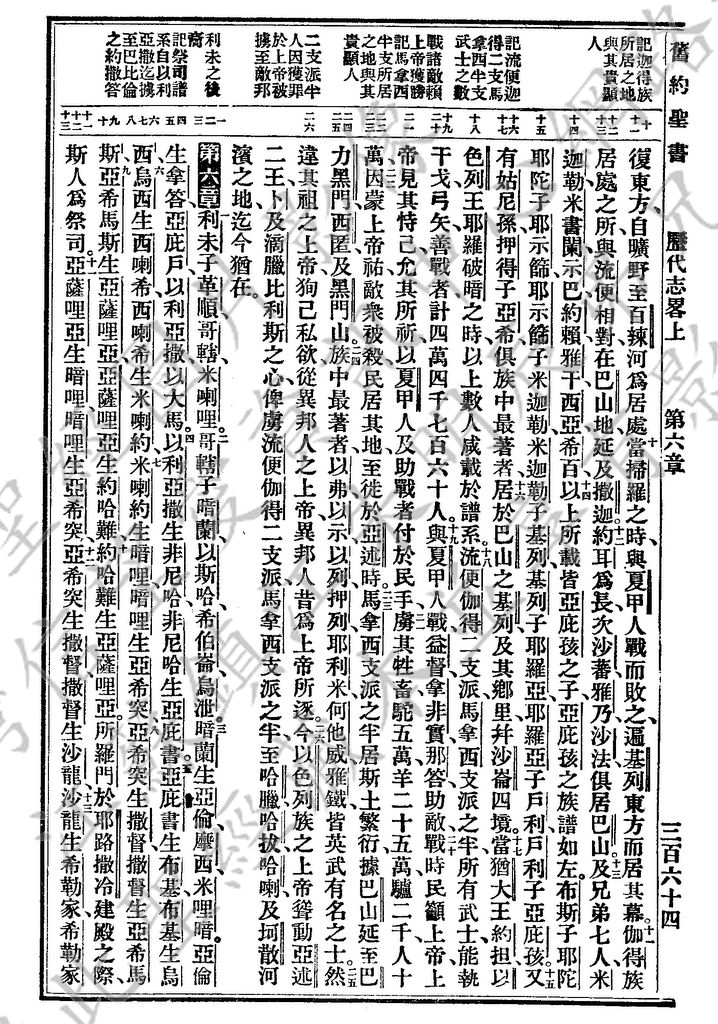 舊約聖書　歷代志畧上　第六章　三百六十四
記迦得族
所居之地
與其貴顯
人
記流便迦
得二支馬
拿西半支
武士之數
戰諸敵賴
上帝獲勝
記馬拿西
半支所居
之地與其
貴顯人
二支派半
人因獲罪
於上帝被
擄至敵邦
利未之後
裔
記祭司譜
系自以利
亞撒迄擄
至巴比倫
之約撒答
復東方自曠野至百辣河爲居處十當掃羅之時與夏甲人戰而敗之遍基列東方而居其幕十一伽得族
居處之所與流便相對在巴山地延及撒迦十二約耳爲長次沙蕃雅乃沙法俱居巴山十三及兄弟七人米
迦勒米書蘭示巴約賴雅干西亞希百十四以上所載皆亞庇孩之子亞庇孩之族譜如左布斯子耶陀
耶陀子耶示篩耶示篩子米迦勒米迦勒子基列基列子耶羅亞耶羅亞子戶利戶利子亞庇孩十五又
有姑尼孫押得子亞希俱族中最著者十六居於巴山之基列及其鄉里幷沙崙四境十七當猶大王約担以
色列王耶羅破暗之時以上數人咸載於譜系十八流便伽得二支派馬拿西支派之半所有武士能執
干戈弓矢善戰者計四萬四千七百六十人十九與夏甲人戰益督拿非實那答助敵二十戰時民籲上帝上
帝見其恃己允其所祈以夏甲人及助戰者付於民手二一虜其牲畜駝五萬羊二十五萬驢二千人十
萬二二因蒙上帝祐敵衆被殺民居其地至徙於亞述時二三馬拿西支派之半居斯土繁衍據巴山延至巴
力黑門西匿及黑門山二四族中最著者以弗以示以列押列耶利米何他威雅鐵皆英武有名之士二五然
違其祖之上帝狥己私欲從異邦人之上帝異邦人昔爲上帝所逐二六今以色列族之上帝聳動亞述
二王卜及滴臘比利斯之心俾虜流便伽得二支派馬拿西支派之半至哈臘哈拔哈喇及坷散河
濱之地迄今猶在
第六章利未子革順哥轄米喇哩二哥轄子暗蘭以斯哈希伯崙烏泄三暗蘭生亞倫摩西米哩暗亞倫
生拿答亞庇戶以利亞撒以大馬四以利亞撒生非尼哈非尼哈生亞庇書五亞庇書生布基布基生烏
西六烏西生西喇希西喇希生米喇約七米喇約生暗哩暗哩生亞希突八亞希突生撒督撒督生亞希馬
斯九亞希馬斯生亞薩哩亞亞薩哩亞生約哈難十約哈難生亞薩哩亞所羅門於耶路撒冷建殿之際
斯人爲祭司十一亞薩哩亞生暗哩暗哩生亞希突十二亞希突生撒督撒督生沙龍十三沙龍生希勒家希勒家